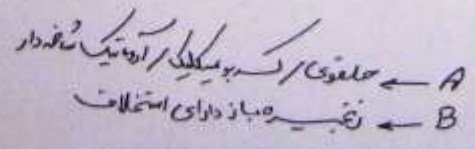 A ← حلقوی / کربوسیکلیک / آروماتیک شاخه‌دار
B ← زنجیره باز دارای استخلاف